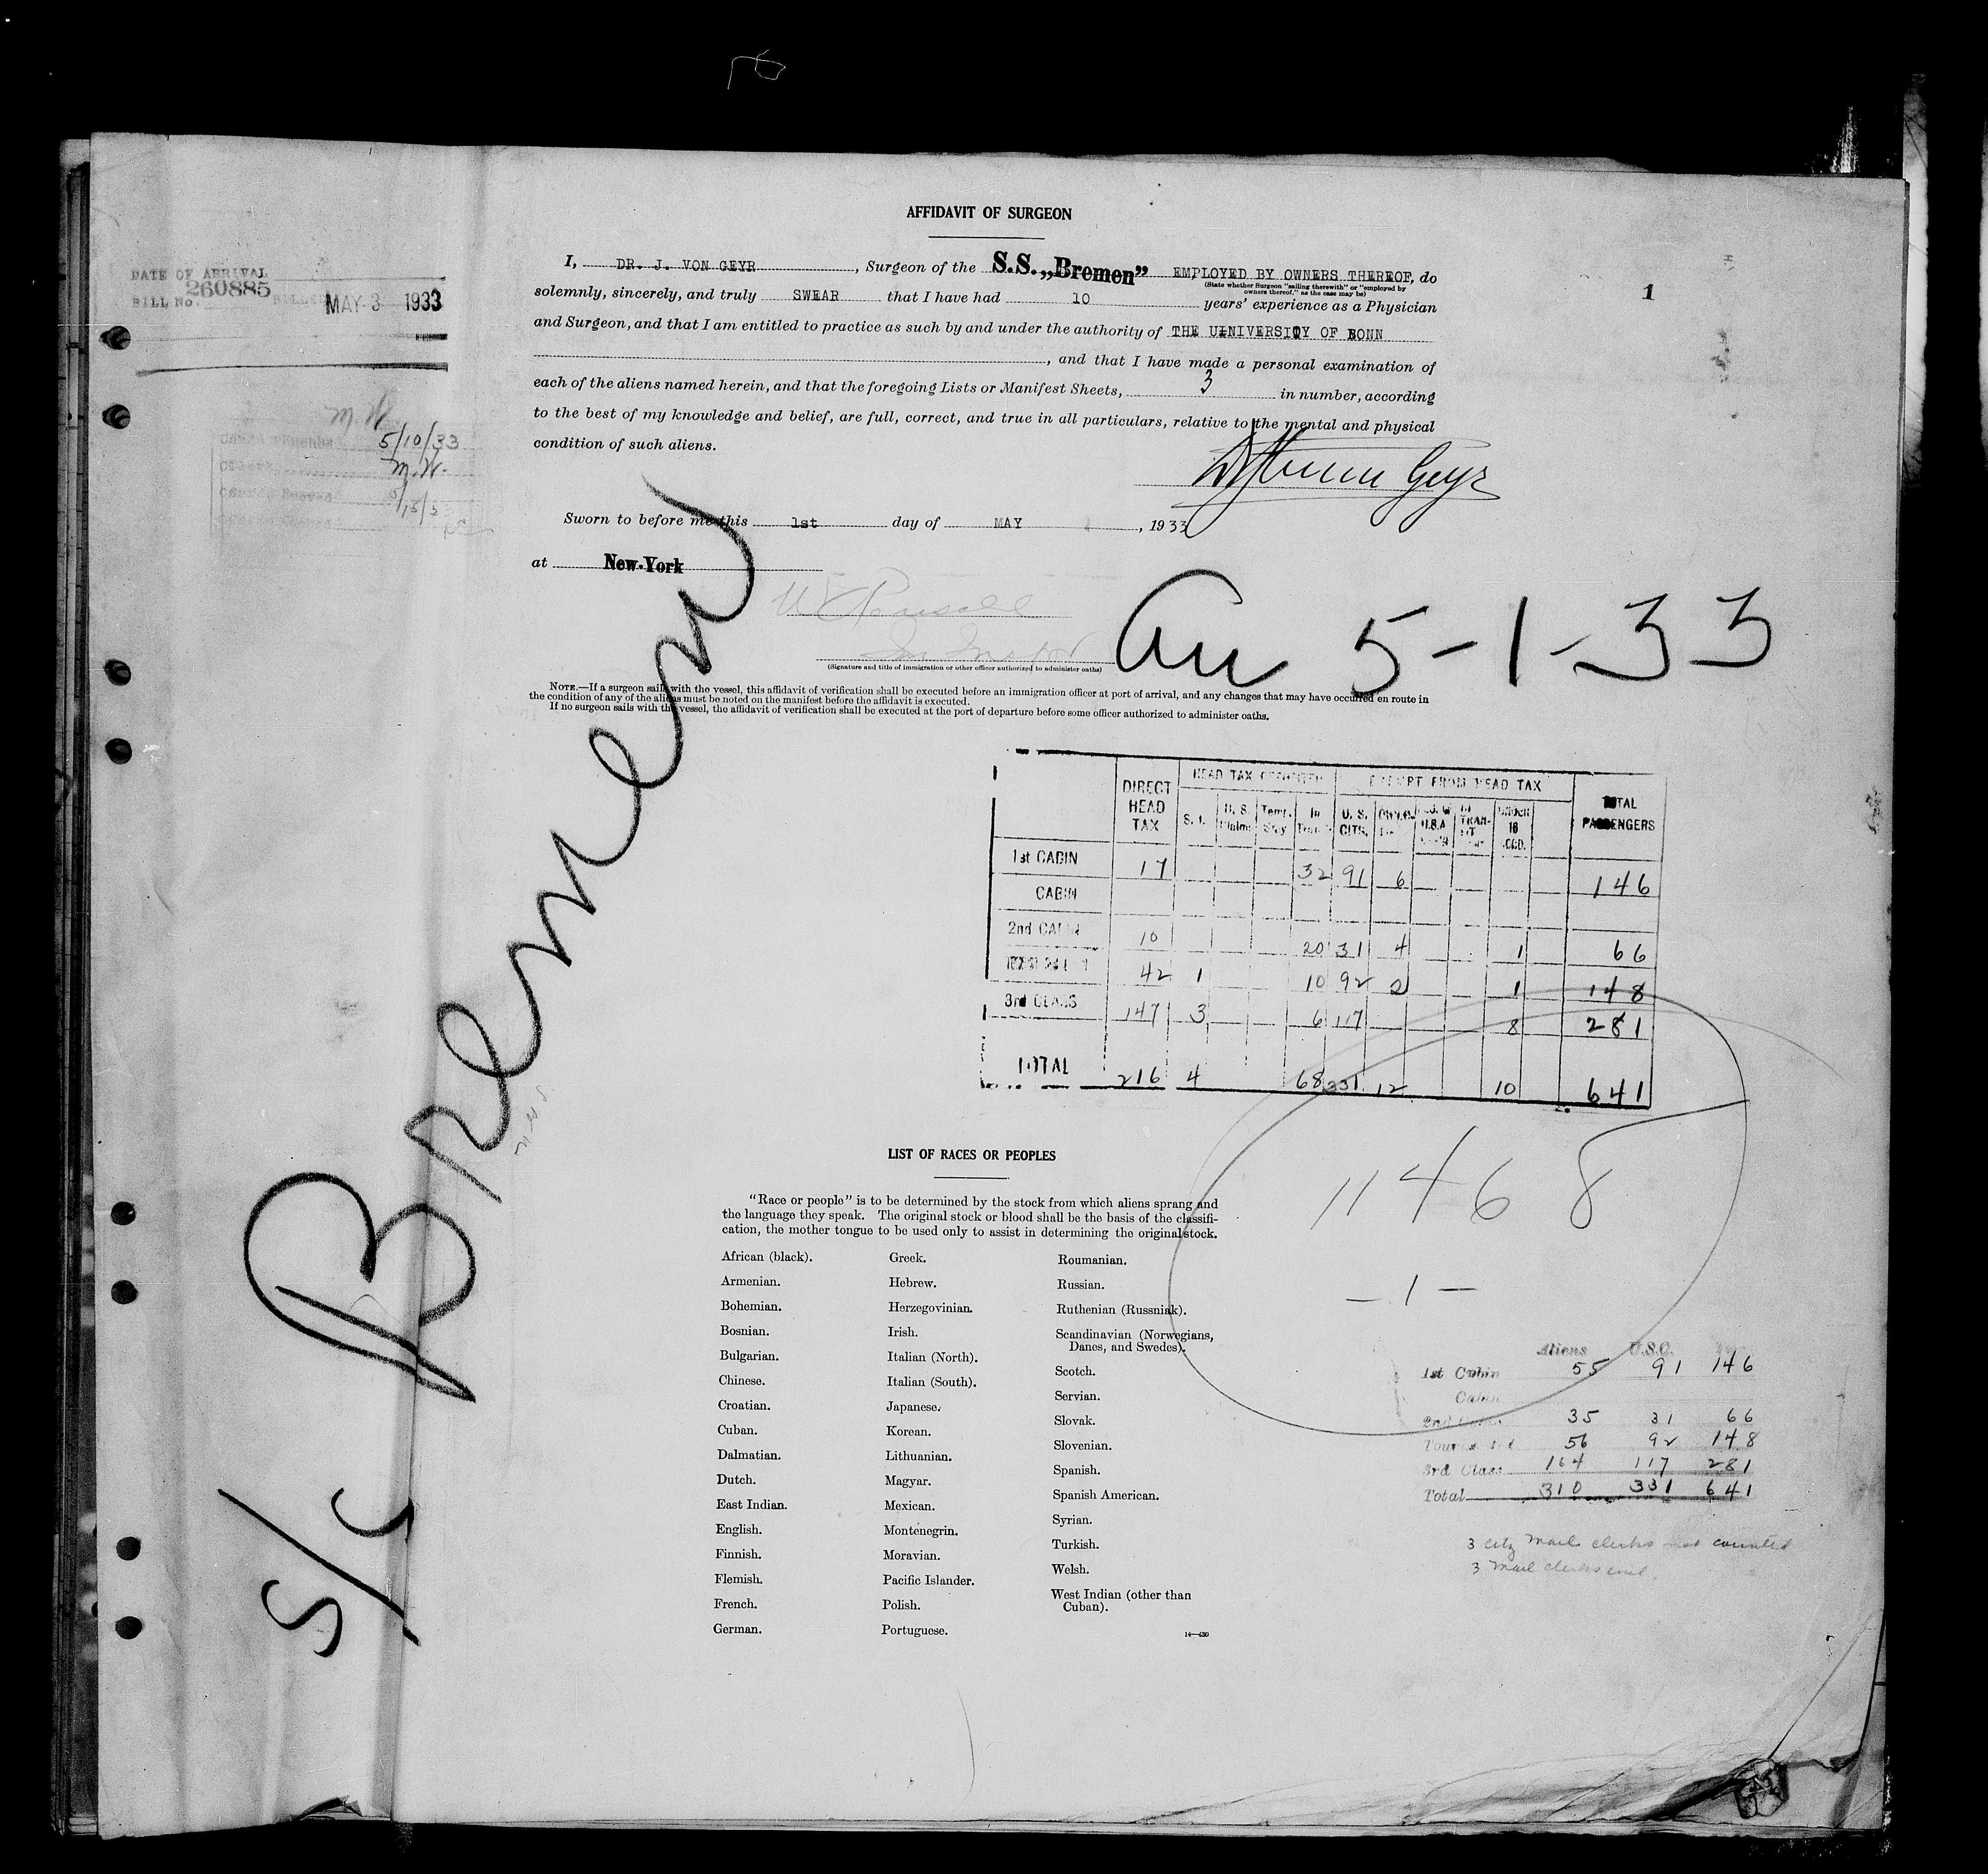 AFFIDAVIT OF SURGEON
I, DR. J. VON GEYR, Surgeon of the S.S. „Bremen” EMPLOYED BY OWNERS THEREOF, do
(State whether Surgeon "sailing therewith" or "employed by
owners thereof," as the case may be)
solemnly, sincerely, and truly SWEAR that I have had 10 years' experience as a Physician
and Surgeon, and that I am entitled to practice as such by and under the authority of THE UINIVERSITY OF BONN
, and that I have made a personal examination of
each of the aliens named herein, and that the foregoing Lists or Manifest Sheets, 3 in number, according
to the best of my knowledge and belief, are full, correct, and true in all particulars, relative to the mental and physical
condition of such aliens.
Geyr
Sworn to before me this 1st day of MAY, 1933
at New-York
(Signature and title of immigration or other officer authorized to administer oaths)
NOTE.—If a surgeon sails with the vessel, this affidavit of verification shall be executed before an immigration officer at port of arrival, and any changes that may have occurred en route in
the condition of any of the aliens must be noted on the manifest before the affidavit is executed.
If no surgeon sails with the vessel, the affidavit of verification shall be executed at the port of departure before some officer authorized to administer oaths.
1
DATE OF ARRIVAL
260885
BILL No.
MAY 3 1933
M.W.
5/10/33
M.W.
S/S Bremen
5-1-33
DIRECT HEAD TAX
HEAD TAX
EXEMPT FROM HEAD TAX
TOTAL PASSENGERS
S. I. U. S. Claims Temp. Stay In Trans. U. S. CITS. U.S.A. TRAN-SIT UNDER 16
1st CABIN 17 32 91 6 146
CABIN
2nd CABIN 10 20 31 4 1 66
42 1 10 92 2 1 148
3rd CLASS 147 3 6 117 8 281
TOTAL 216 4 68 331 12 10 641
11468
- 1 -
LIST OF RACES OR PEOPLES
"Race or people" is to be determined by the stock from which aliens sprang and
the language they speak. The original stock or blood shall be the basis of the classifi-
cation, the mother tongue to be used only to assist in determining the original stock.
African (black).
Armenian.
Bohemian.
Bosnian.
Bulgarian.
Chinese.
Croatian.
Cuban.
Dalmatian.
Dutch.
East Indian.
English.
Finnish.
Flemish.
French.
German.
Greek.
Hebrew.
Herzegovinian.
Irish.
Italian (North).
Italian (South).
Japanese.
Korean.
Lithuanian.
Magyar.
Mexican.
Montenegrin.
Moravian.
Pacific Islander.
Polish.
Portuguese.
Roumanian.
Russian.
Ruthenian (Russniak).
Scandinavian (Norwegians,
Danes, and Swedes).
Scotch.
Servian.
Slovak.
Slovenian.
Spanish.
Spanish American.
Syrian.
Turkish.
Welsh.
West Indian (other than
Cuban).
14—430
Aliens U.S.C.
1st Cabin 55 91 146
Cabin
2nd Cabin 35 31 66
Tourist 3rd 56 92 148
3rd Class 164 117 281
Total 310 331 641
3 city mail clerks not counted
3 Mail clerks